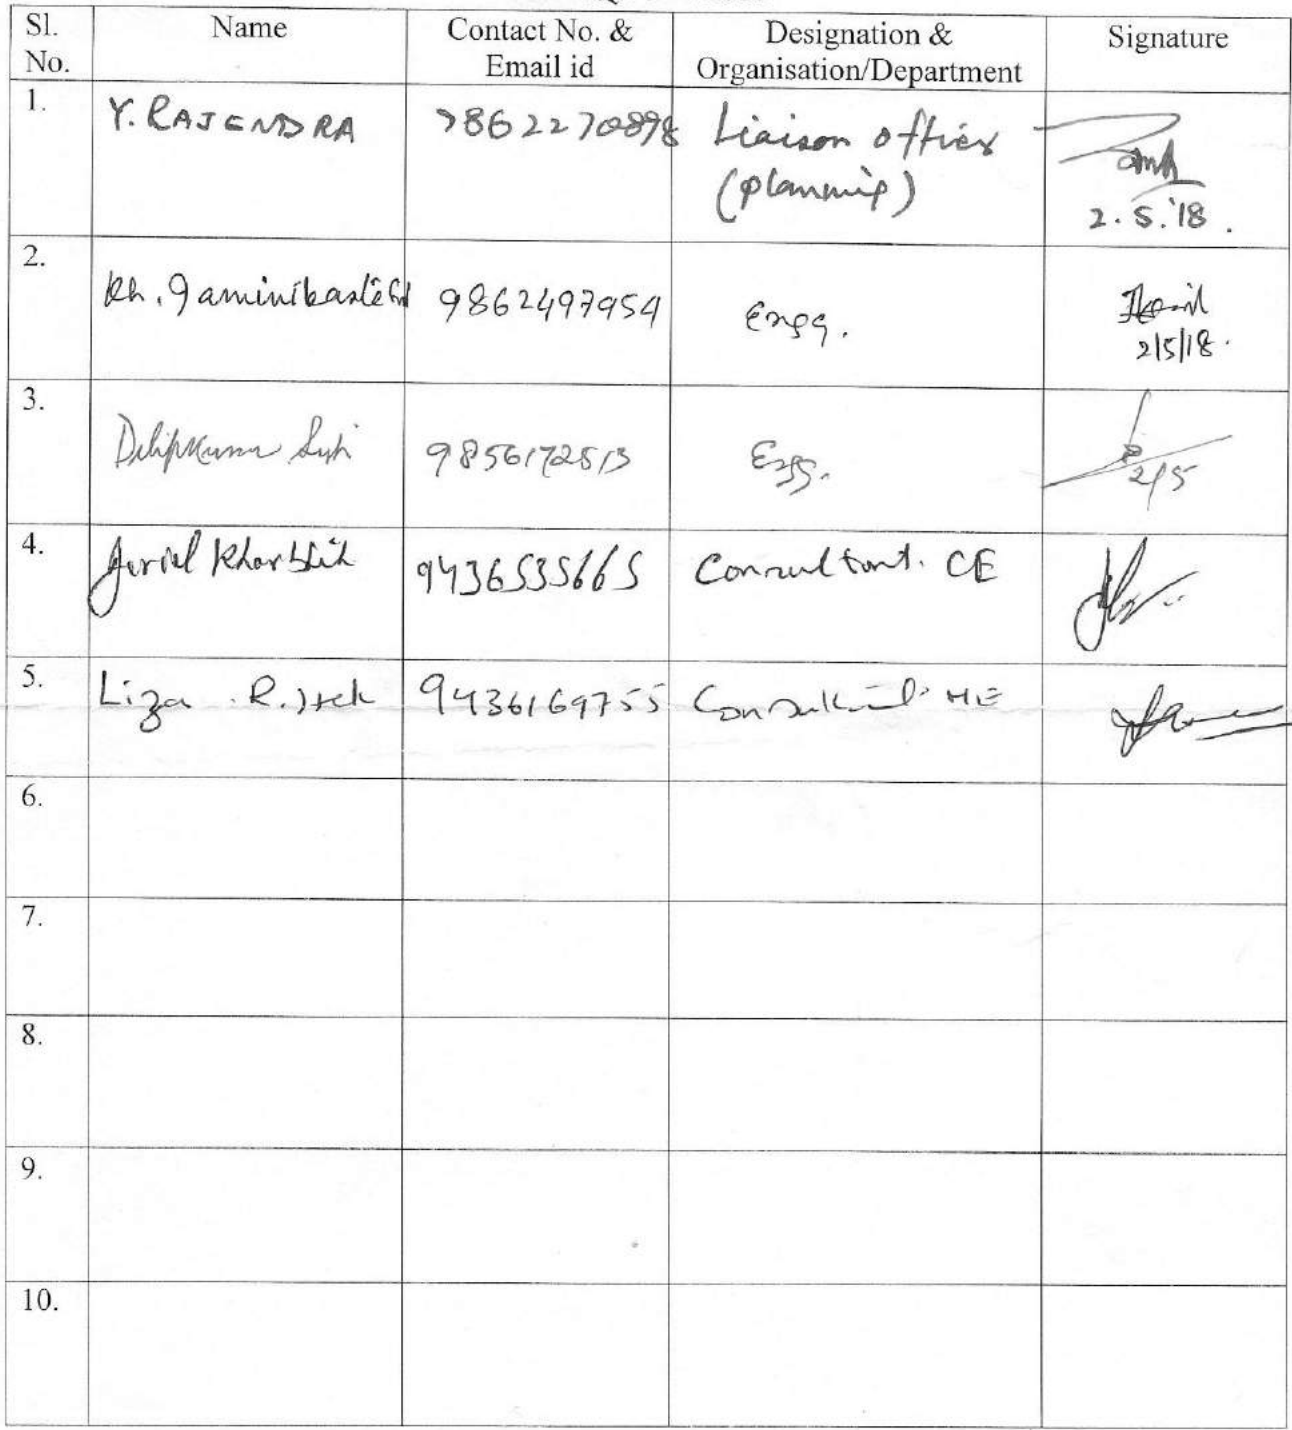 Sl.
No.
Name
Contact No. &
Email id
Designation &
Organisation/Department
Signature
1.
Y. RAJENDRA
7862270898
Liaison officer
(planning)
2.5.'18.
2.
Kh.
9862497954
Engg.
2/5/18.
3.
Dilipkumar
9856172513
Engg.
2/5
4.
Kharbhih
9436535665
Consultant. CE
5.
Liza R.
9436169755
Consultant ME
6.
7.
8.
9.
10.